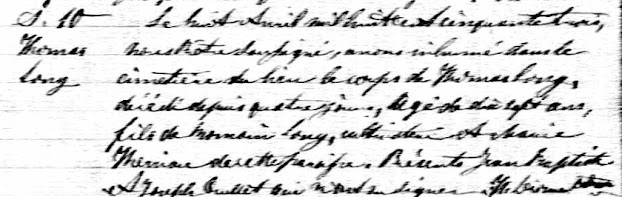 S. 10 Le huit Avril mil huit cent cinquante trois,
Thomas nous Prêtre soussigné, avons inhumé dans le
Long cimetière du lieu le corps de Thomas Long,
décédé depuis quatre jours, âgé de dix sept ans,
fils de Romain Long, cultivateur et Marie
Theriau de cette paroisse. Présents Jean Baptiste
et Joseph Ouellet qui n'ont su signer.